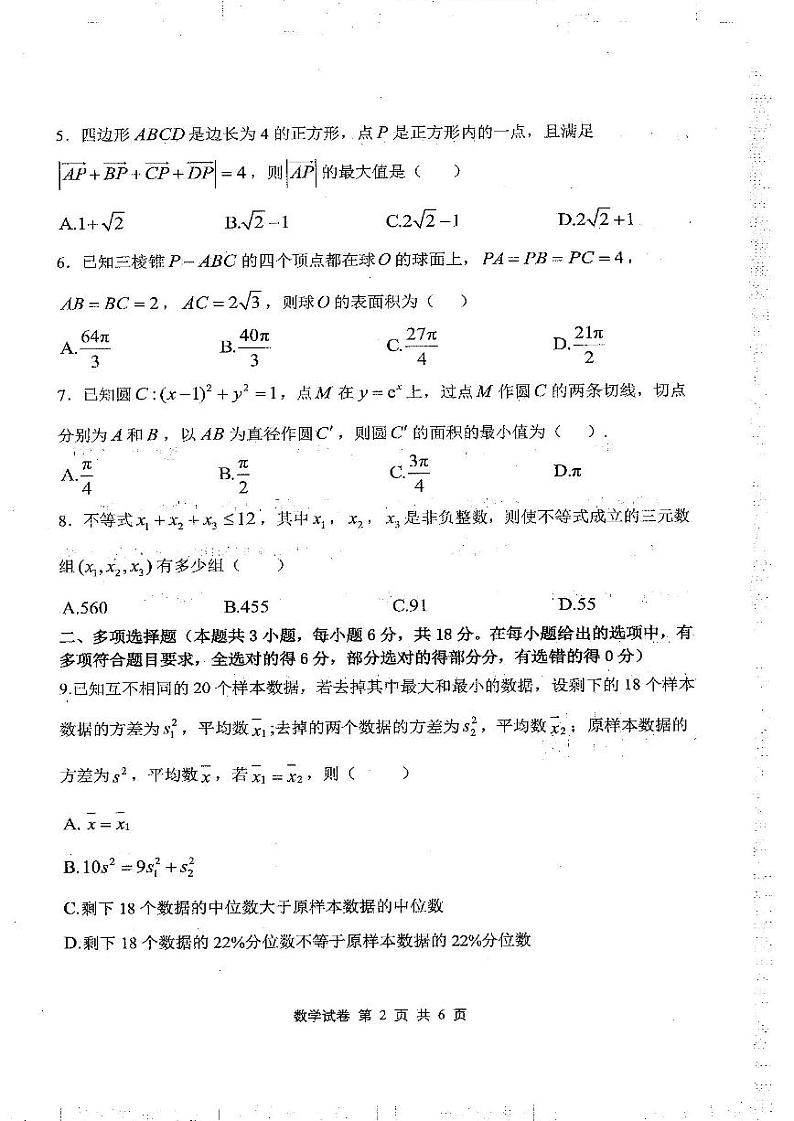 5．四边形 ABCD 是边长为 4 的正方形，点 P 是正方形内的一点，且满足
|AP→+BP→+CP→+DP→|=4，则|AP→|的最大值是（　　）
A.1+√2　　B.√2−1　　C.2√2−1　　D.2√2+1
6．已知三棱锥 P−ABC 的四个顶点都在球 O 的球面上，PA=PB=PC=4，
AB=BC=2，AC=2√3，则球 O 的表面积为（　　）
A.64π/3　　B.40π/3　　C.27π/4　　D.21π/2
7．已知圆 C:(x−1)²+y²=1，点 M 在 y=eˣ 上，过点 M 作圆 C 的两条切线，切点
分别为 A 和 B，以 AB 为直径作圆 C′，则圆 C′ 的面积的最小值为（　　）.
A.π/4　　B.π/2　　C.3π/4　　D.π
8．不等式 x₁+x₂+x₃≤12，其中 x₁，x₂，x₃ 是非负整数，则使不等式成立的三元数
组 (x₁,x₂,x₃) 有多少组（　　）
A.560　　B.455　　C.91　　D.55
二、多项选择题（本题共 3 小题，每小题 6 分，共 18 分。在每小题给出的选项中，有
多项符合题目要求，全选对的得 6 分，部分选对的得部分分，有选错的得 0 分）
9.已知互不相同的 20 个样本数据，若去掉其中最大和最小的数据，设剩下的 18 个样本
数据的方差为 s₁²，平均数 x̄₁;去掉的两个数据的方差为 s₂²，平均数 x̄₂；原样本数据的
方差为 s²，平均数 x̄，若 x̄₁=x̄₂，则（　　）
A. x̄=x̄₁
B.10s²=9s₁²+s₂²
C.剩下 18 个数据的中位数大于原样本数据的中位数
D.剩下 18 个数据的 22%分位数不等于原样本数据的 22%分位数
数学试卷 第 2 页 共 6 页